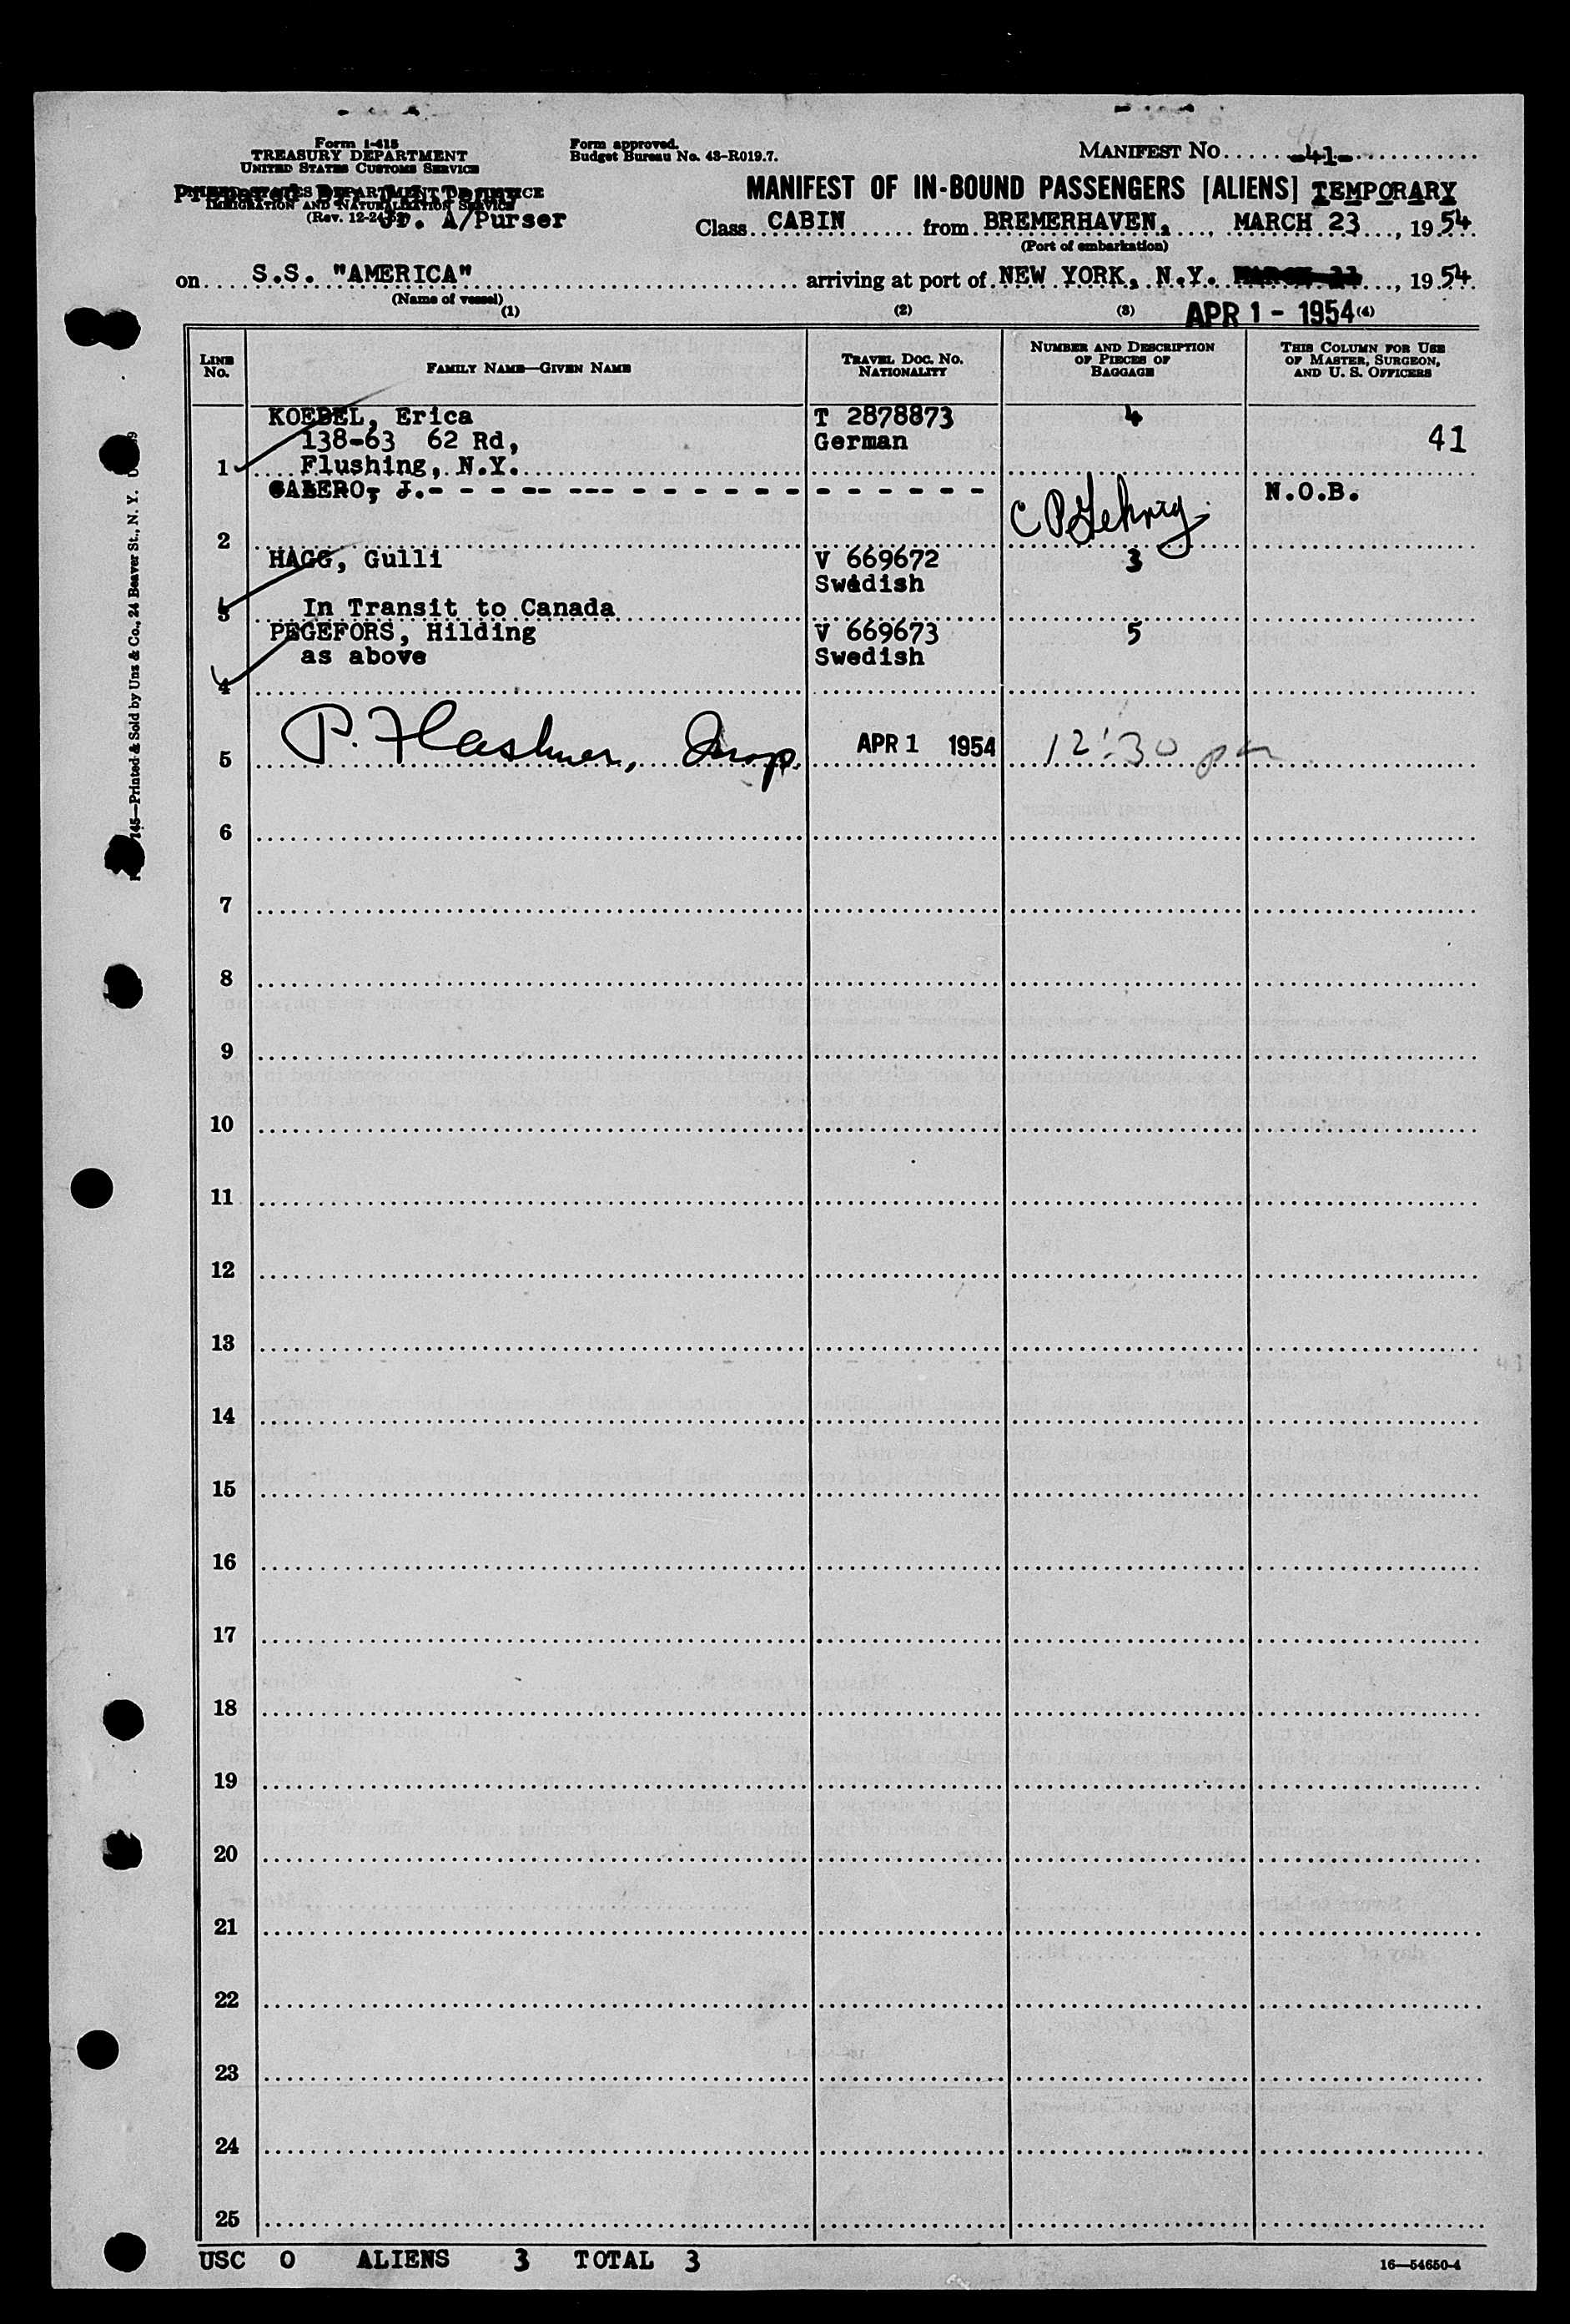 Form I-415
TREASURY DEPARTMENT
UNITED STATES CUSTOMS SERVICE
UNITED STATES DEPARTMENT OF JUSTICE
IMMIGRATION AND NATURALIZATION SERVICE
(Rev. 12-24-52)
Prepared By:
Jr. A/Purser
Form approved.
Budget Bureau No. 43-R019.7.
MANIFEST NO. -41-
MANIFEST OF IN-BOUND PASSENGERS [ALIENS] TEMPORARY
Class CABIN from BREMERHAVEN, MARCH 23, 1954
(Port of embarkation)
on S.S. "AMERICA" arriving at port of NEW YORK, N.Y. , 1954
(Name of vessel)
APR 1 - 1954
(1) (2) (3) (4)
LINE NO. FAMILY NAME—GIVEN NAME TRAVEL DOC. NO. NATIONALITY NUMBER AND DESCRIPTION OF PIECES OF BAGGAGE THIS COLUMN FOR USE OF MASTER, SURGEON, AND U. S. OFFICERS
KOEBEL, Erica T 2878873 4
138-63 62 Rd, German 41
1 Flushing, N.Y.
CALERO, J.- - - - - - - - - - - - - - - - - N.O.B.
2 C P Gehrig
HAGG, Gulli V 669672 3
Swedish
3 In Transit to Canada
PEGEFORS, Hilding V 669673 5
as above Swedish
4
5 P. Flashner, Insp. APR 1 1954 12:30 pm
6
7
8
9
10
11
12
13
14
15
16
17
18
19
20
21
22
23
24
25
USC 0 ALIENS 3 TOTAL 3
16—54650-4
145—Printed & Sold by Unz & Co., 24 Beaver St., N. Y.